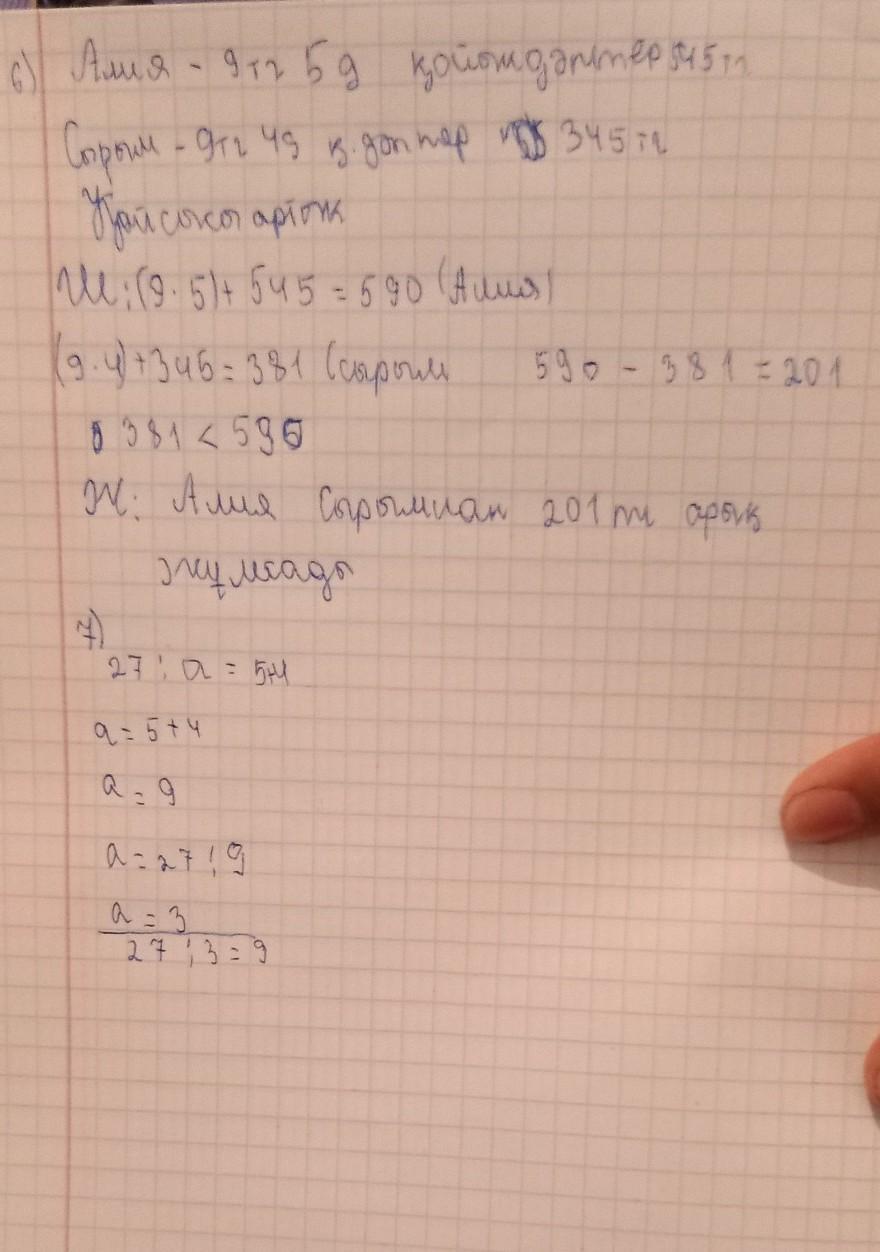 6) Алия - 9тг 5д қойын дәптер 545тг
Сырым - 9тг 4д қ. дәптер 345тг
Қайсысы артық
Ш: (9·5)+545=590 (Алия)
(9·4)+345=381 (сырым 590 - 381 = 201
381 < 590
Ж: Алия Сырымнан 201тг арық
жұмсады
7)
27 : a = 5+4
a = 5+4
a = 9
a = 27 : 9
a = 3
27 : 3 = 9